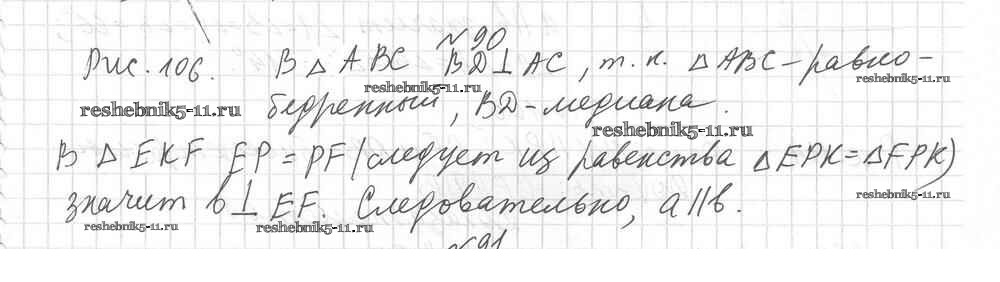 №90
Рис. 106. В △ ABC BD⊥AC, т.к. △ABC-равно-
reshebnik5-11.ru reshebnik5-11.ru reshebnik5-11.ru
бедренный, BD-медиана.
reshebnik5-11.ru
В △ EKF EP = PF (следует из равенства △EPK=△FPK)
значит b⊥EF. Следовательно, a∥b.
reshebnik5-11.ru
reshebnik5-11.ru reshebnik5-11.ru
№91